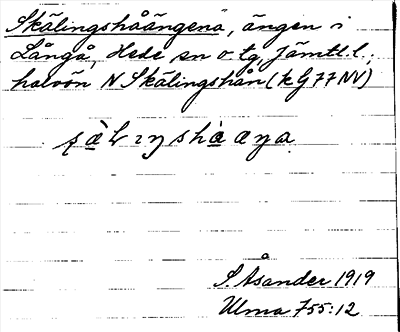 Skälingshåängena, ängen i
Långå, Hede sn o. tg, Jämtl. l.;
halvön N Skälingshån (kG77NV)
S. Åsander 1919
Ulma 755:12